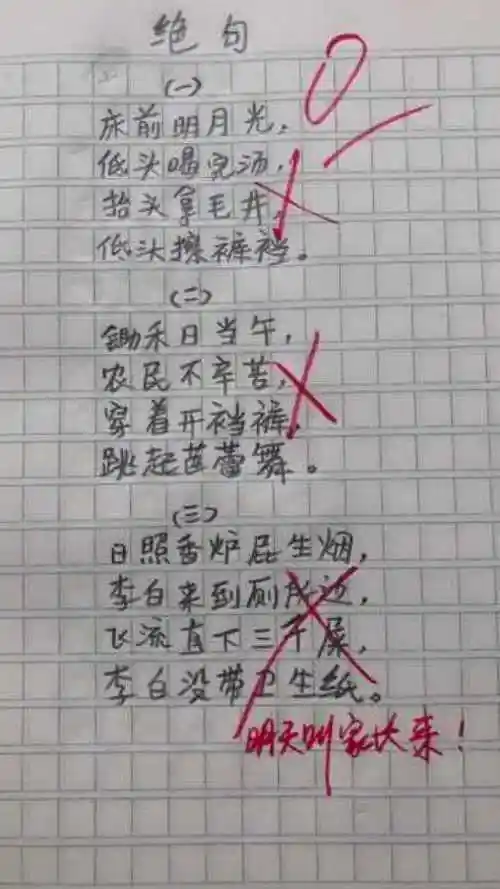 绝句
0
(一)
床前明月光,
低头喝完汤,
抬头拿毛巾,
低头擦裤裆。
(二)
锄禾日当午,
农民不辛苦,
穿着开裆裤,
跳起芭蕾舞。
(三)
日照香炉屁生烟,
李白来到厕所边,
飞流直下三千屎,
李白没带卫生纸。
明天叫家长来!